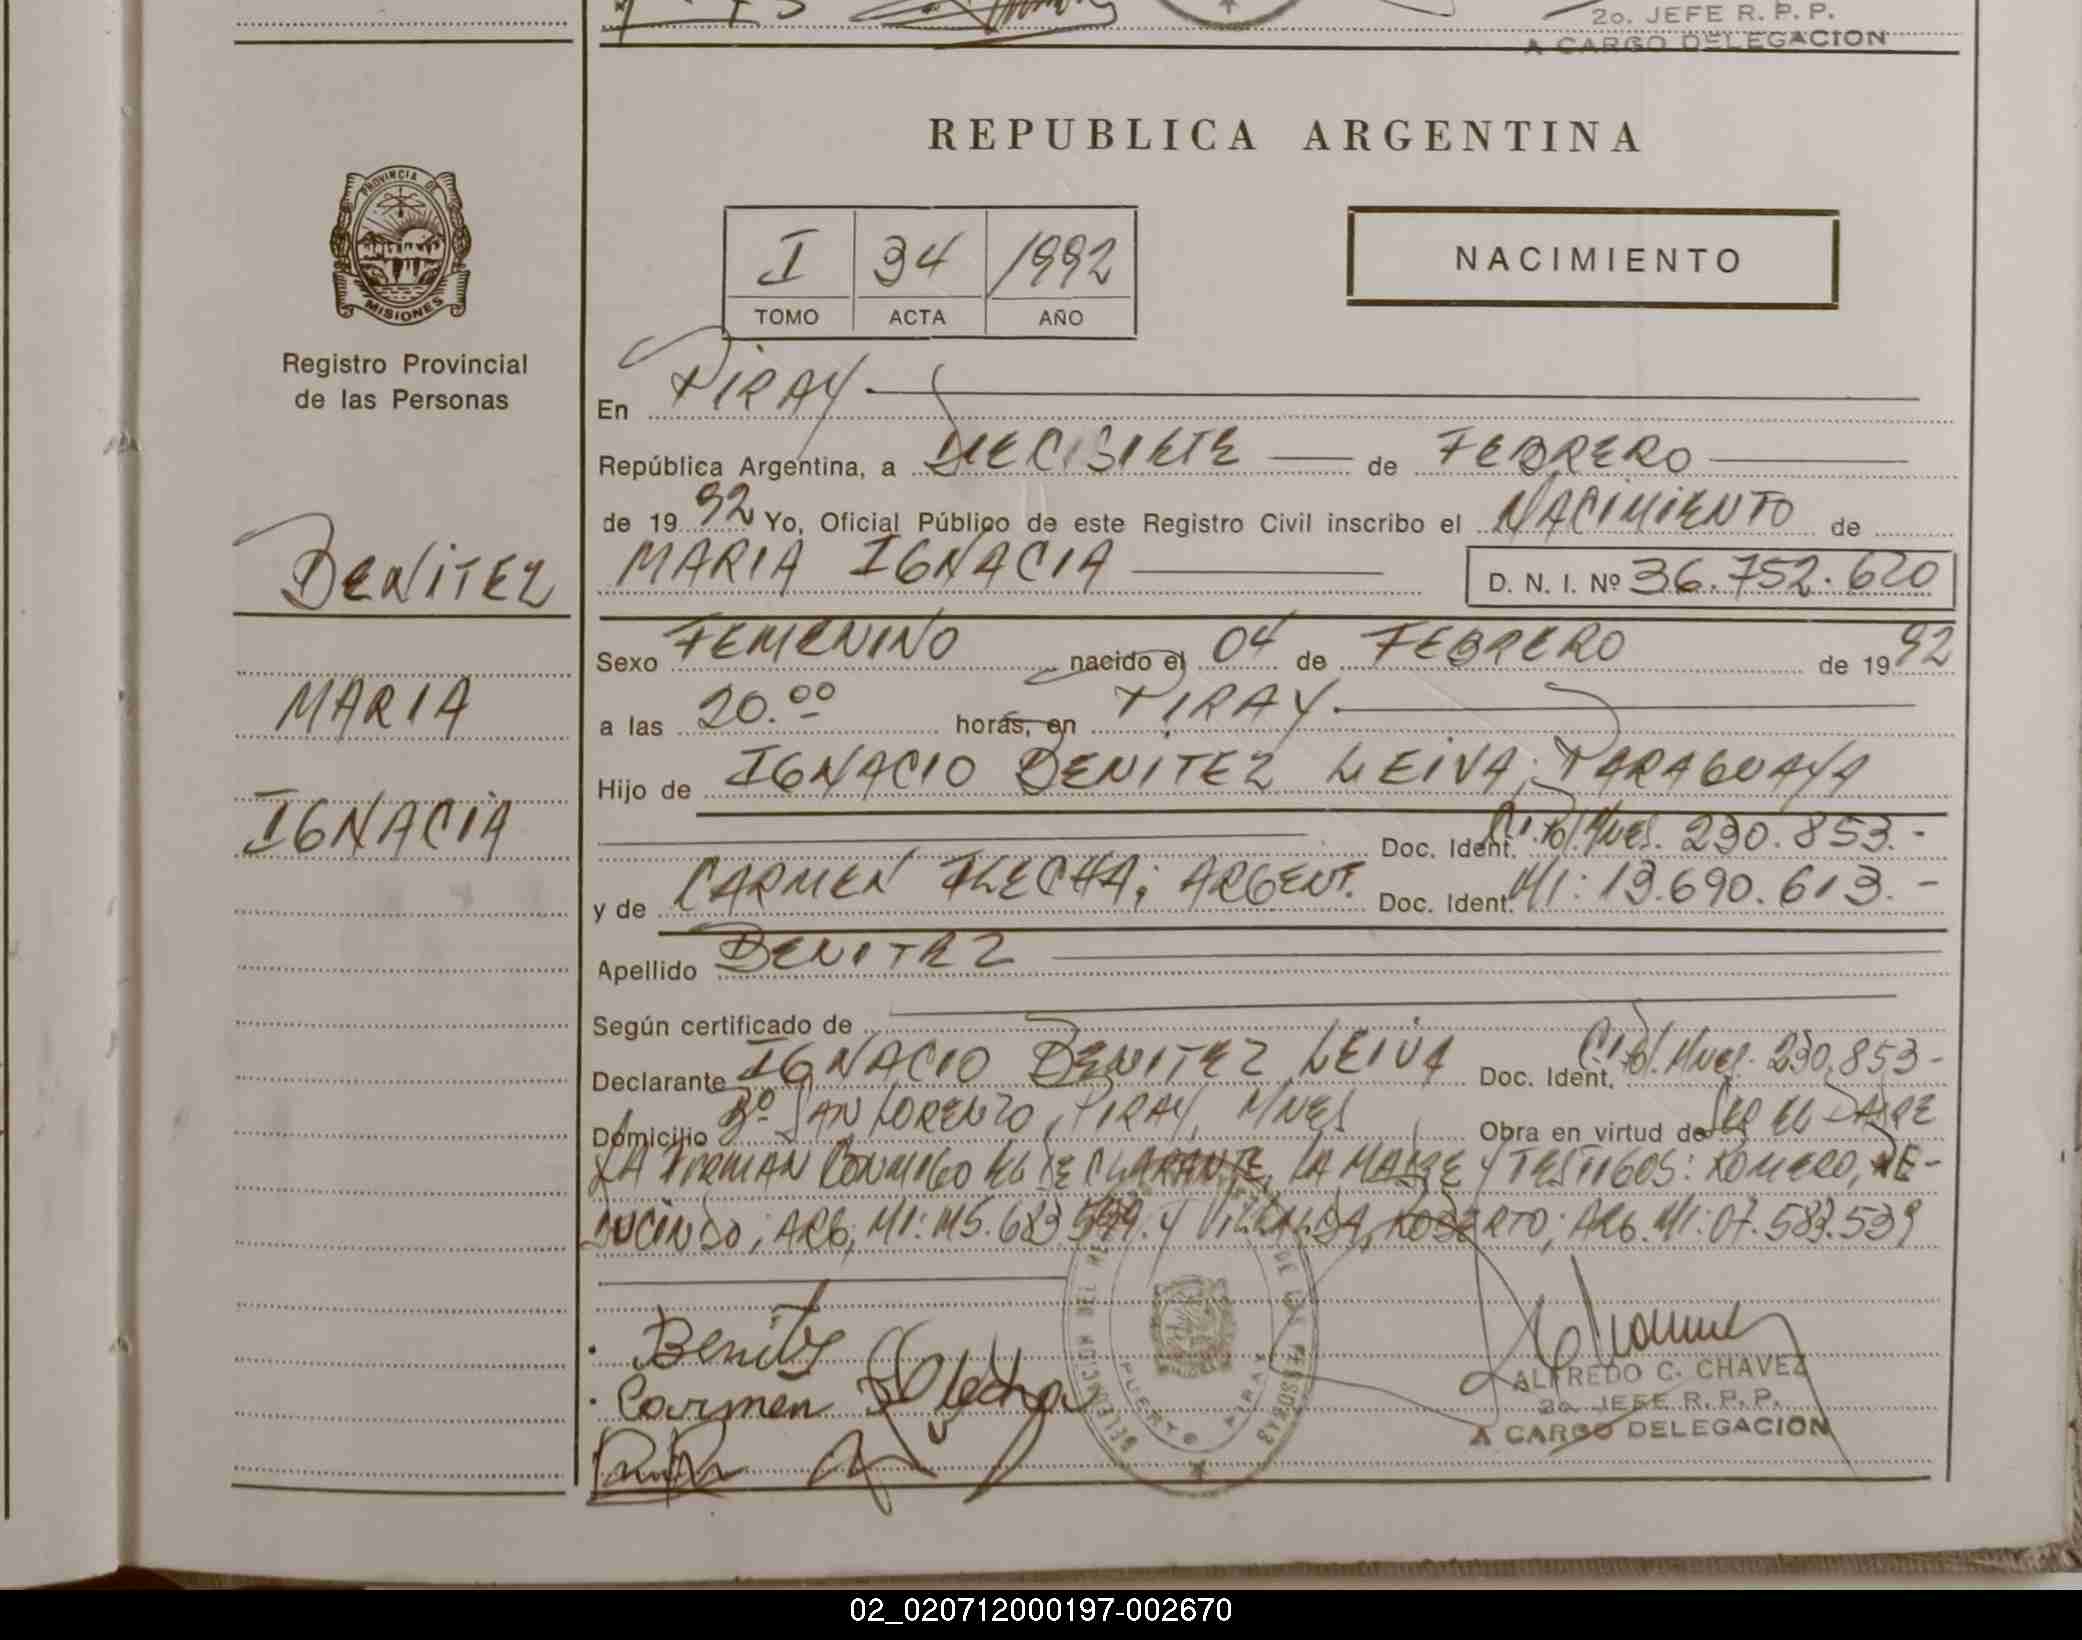 2o. JEFE R. P. P.
A CARGO DELEGACION
REPUBLICA ARGENTINA
PROVINCIA DE
MISIONES
Registro Provincial
de las Personas
I 34 1992
TOMO ACTA AÑO
NACIMIENTO
En PIRAY
República Argentina, a DIECISIETE de FEBRERO
de 1992 Yo, Oficial Público de este Registro Civil inscribo el NACIMIENTO de
MARIA IGNACIA D. N. I. Nº 36.752.620
BENITEZ
MARIA
IGNACIA
Sexo FEMENINO nacido el 04 de FEBRERO de 1992
a las 20.00 horas, en PIRAY
Hijo de IGNACIO BENITEZ LEIVA; PARAGUAYA
Doc. Ident. C.I. Pol. Mnes. 230.853.-
y de CARMEN FLECHA; ARGENT. Doc. Ident. MI: 13.690.613.-
Apellido BENITEZ
Según certificado de
Declarante IGNACIO BENITEZ LEIVA Doc. Ident. C.I. Pol. Mnes. 230.853-
Domicilio Bº SAN LORENZO, PIRAY, MNES Obra en virtud de SER EL PADRE
LA FIRMAN CONMIGO EL DECLARANTE, LA MADRE Y TESTIGOS: ROMERO, RE-
DUCINDO; ARG; MI: M5.683. Y VILLALBA, ROBERTO; ARG. MI: 07.583.539
Benitez
Carmen Flecha
DELEGACION
DE LAS PERSONAS
PUERTO PIRAY
ALFREDO C. CHAVEZ
2o. JEFE R. P. P.
A CARGO DELEGACION
02_020712000197-002670